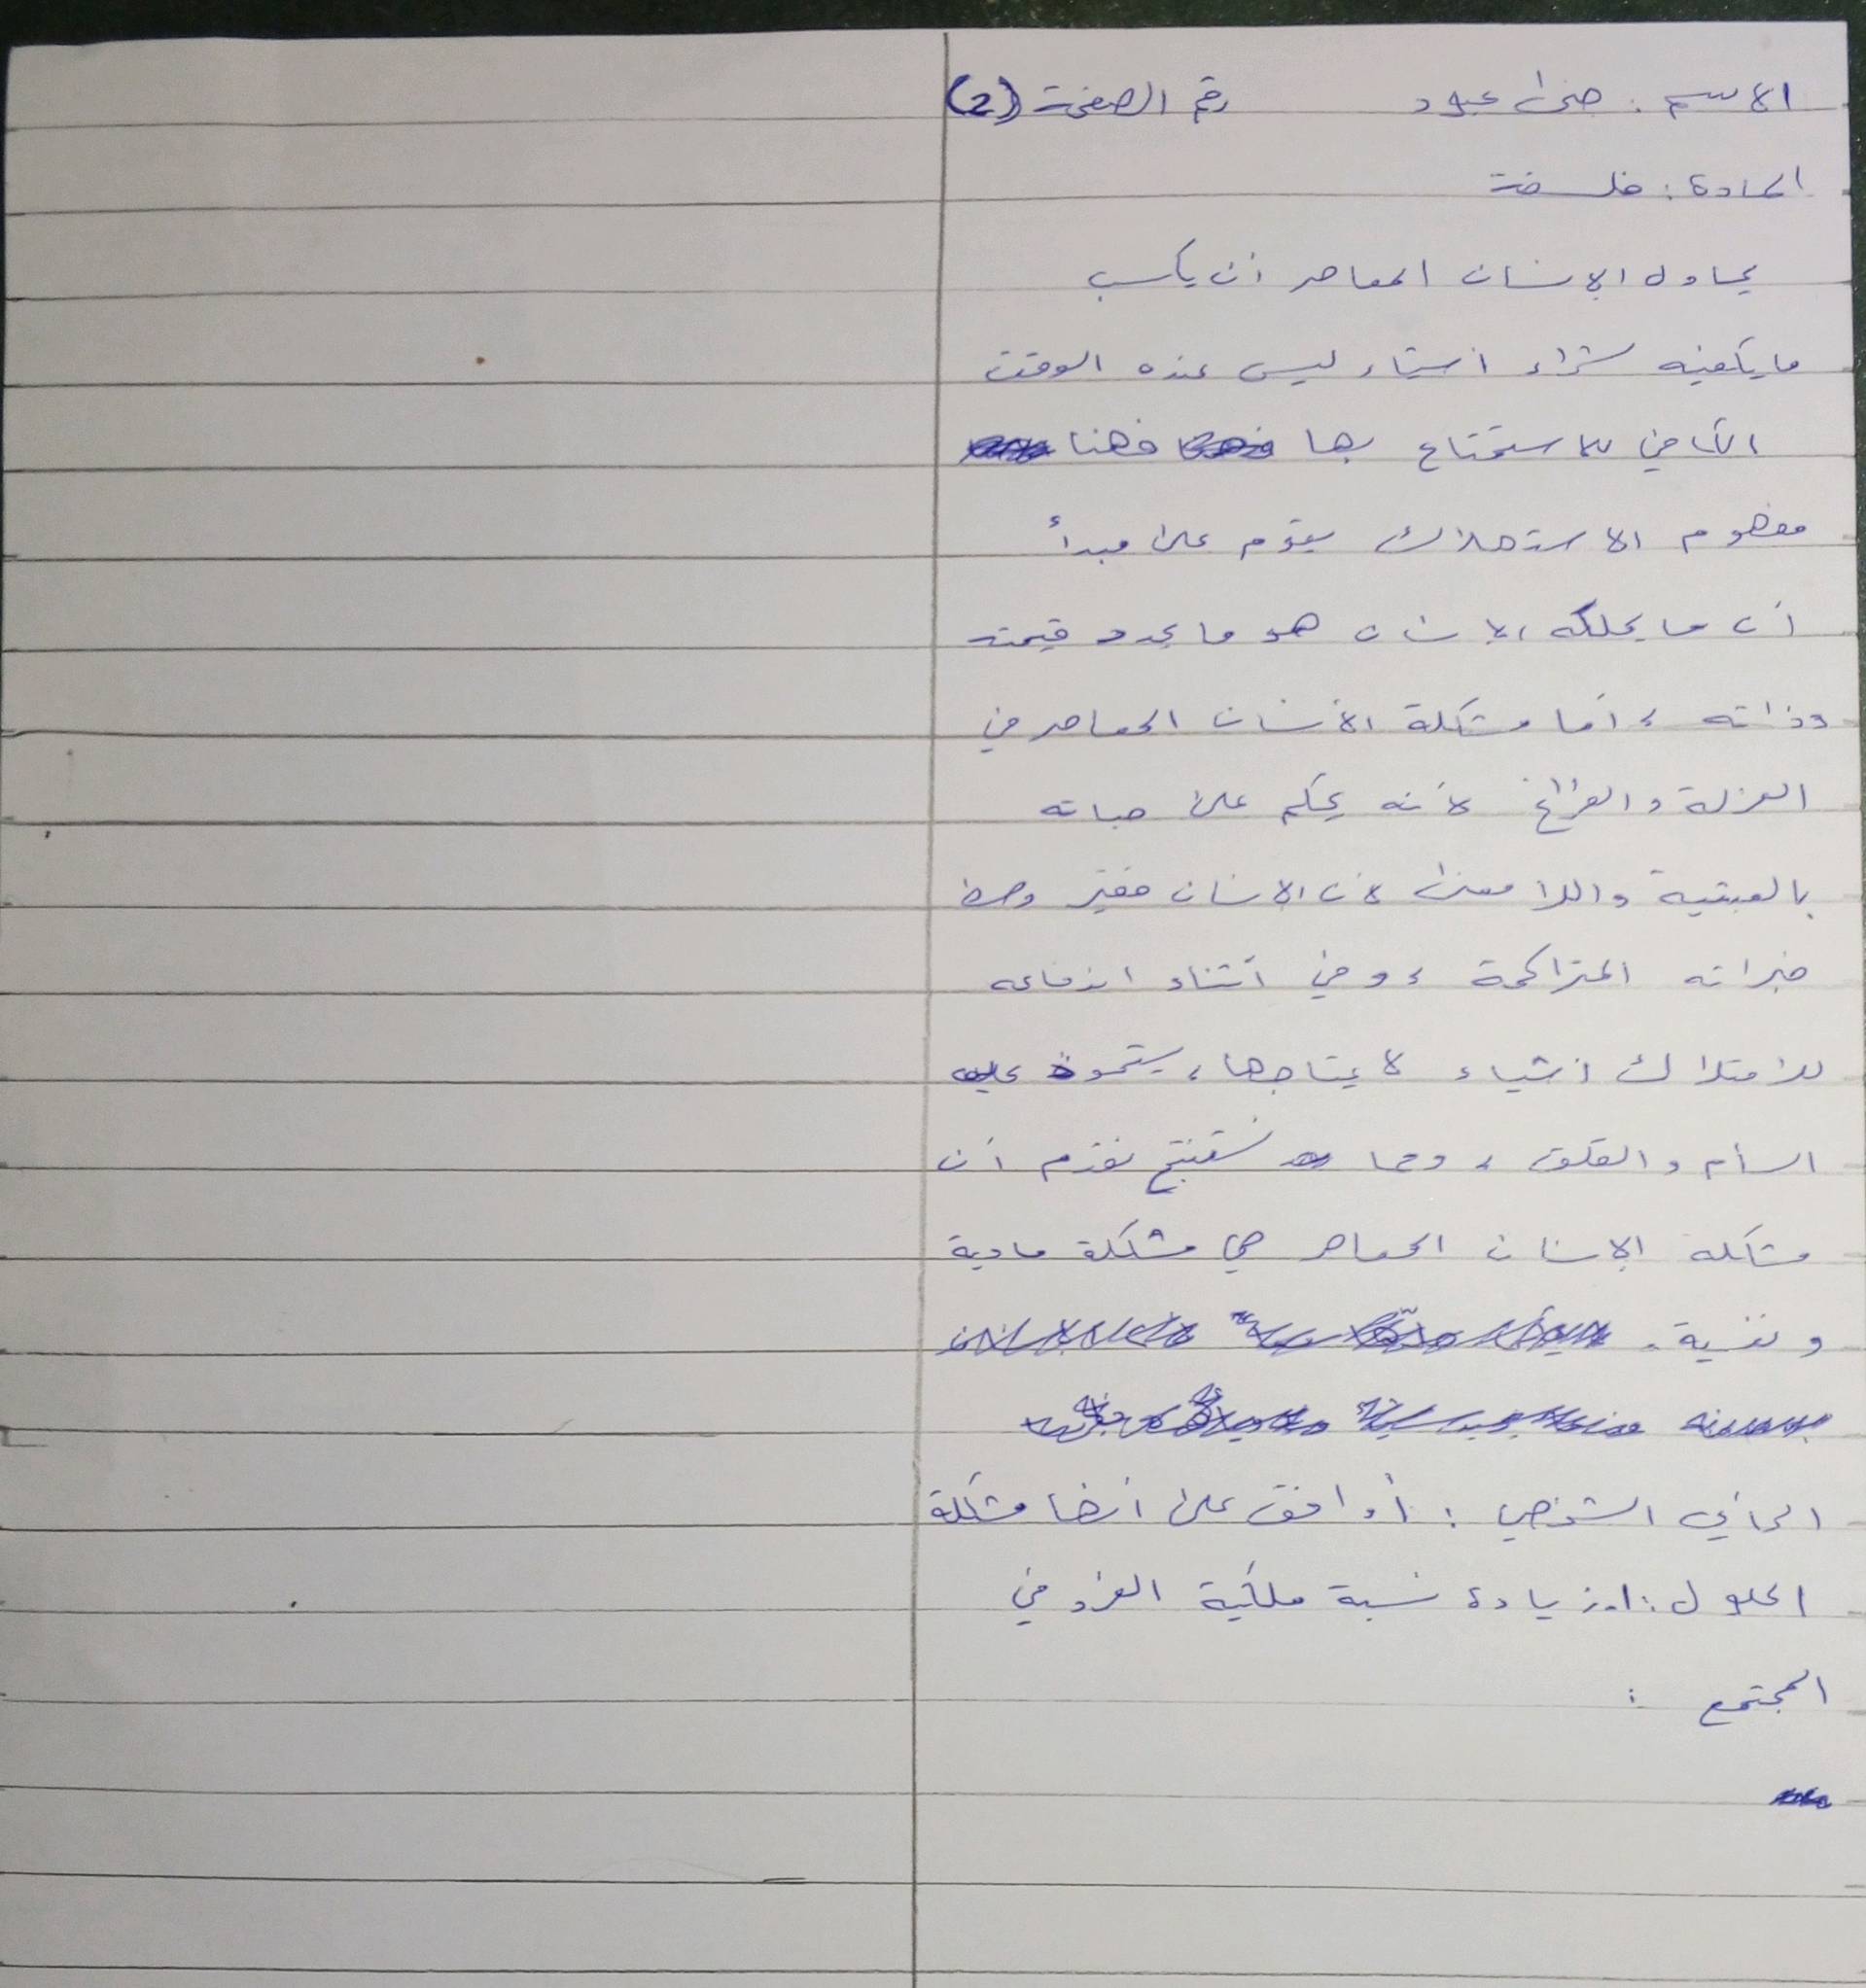 الاسم: عبود رقم الصفحة (2)
المادة: فلسفة
يحاول الإنسان المعاصر أن يكسب
ما يكفيه لشراء أشياء ليس عنده الوقت
الكافي للاستمتاع بها فهنا
مفهوم الاستهلاك يقوم على مبدأ
أن ما يملكه الإنسان هو ما يحدد قيمته
وذاته، أما مشكلة الأنسان المعاصر في
العزلة والفراغ لأنه يحكم على حياته
بالعبثية واللا معنى لأن الإنسان فقير وسط
خبراته المتراكمة، وفي أثناء اندفاعه
للامتلاك أشياء لا يحتاجها، يستحوذ عليه
السأم والقلق، ومما نستنتج تقدم أن
مشكلة الإنسان المعاصر هي مشكلة مادية
ونفسية.
الرأي الشخصي: أوافق على أنها مشكلة
الحلول: 1. زيادة نسبة ملكية الفرد في
المجتمع: